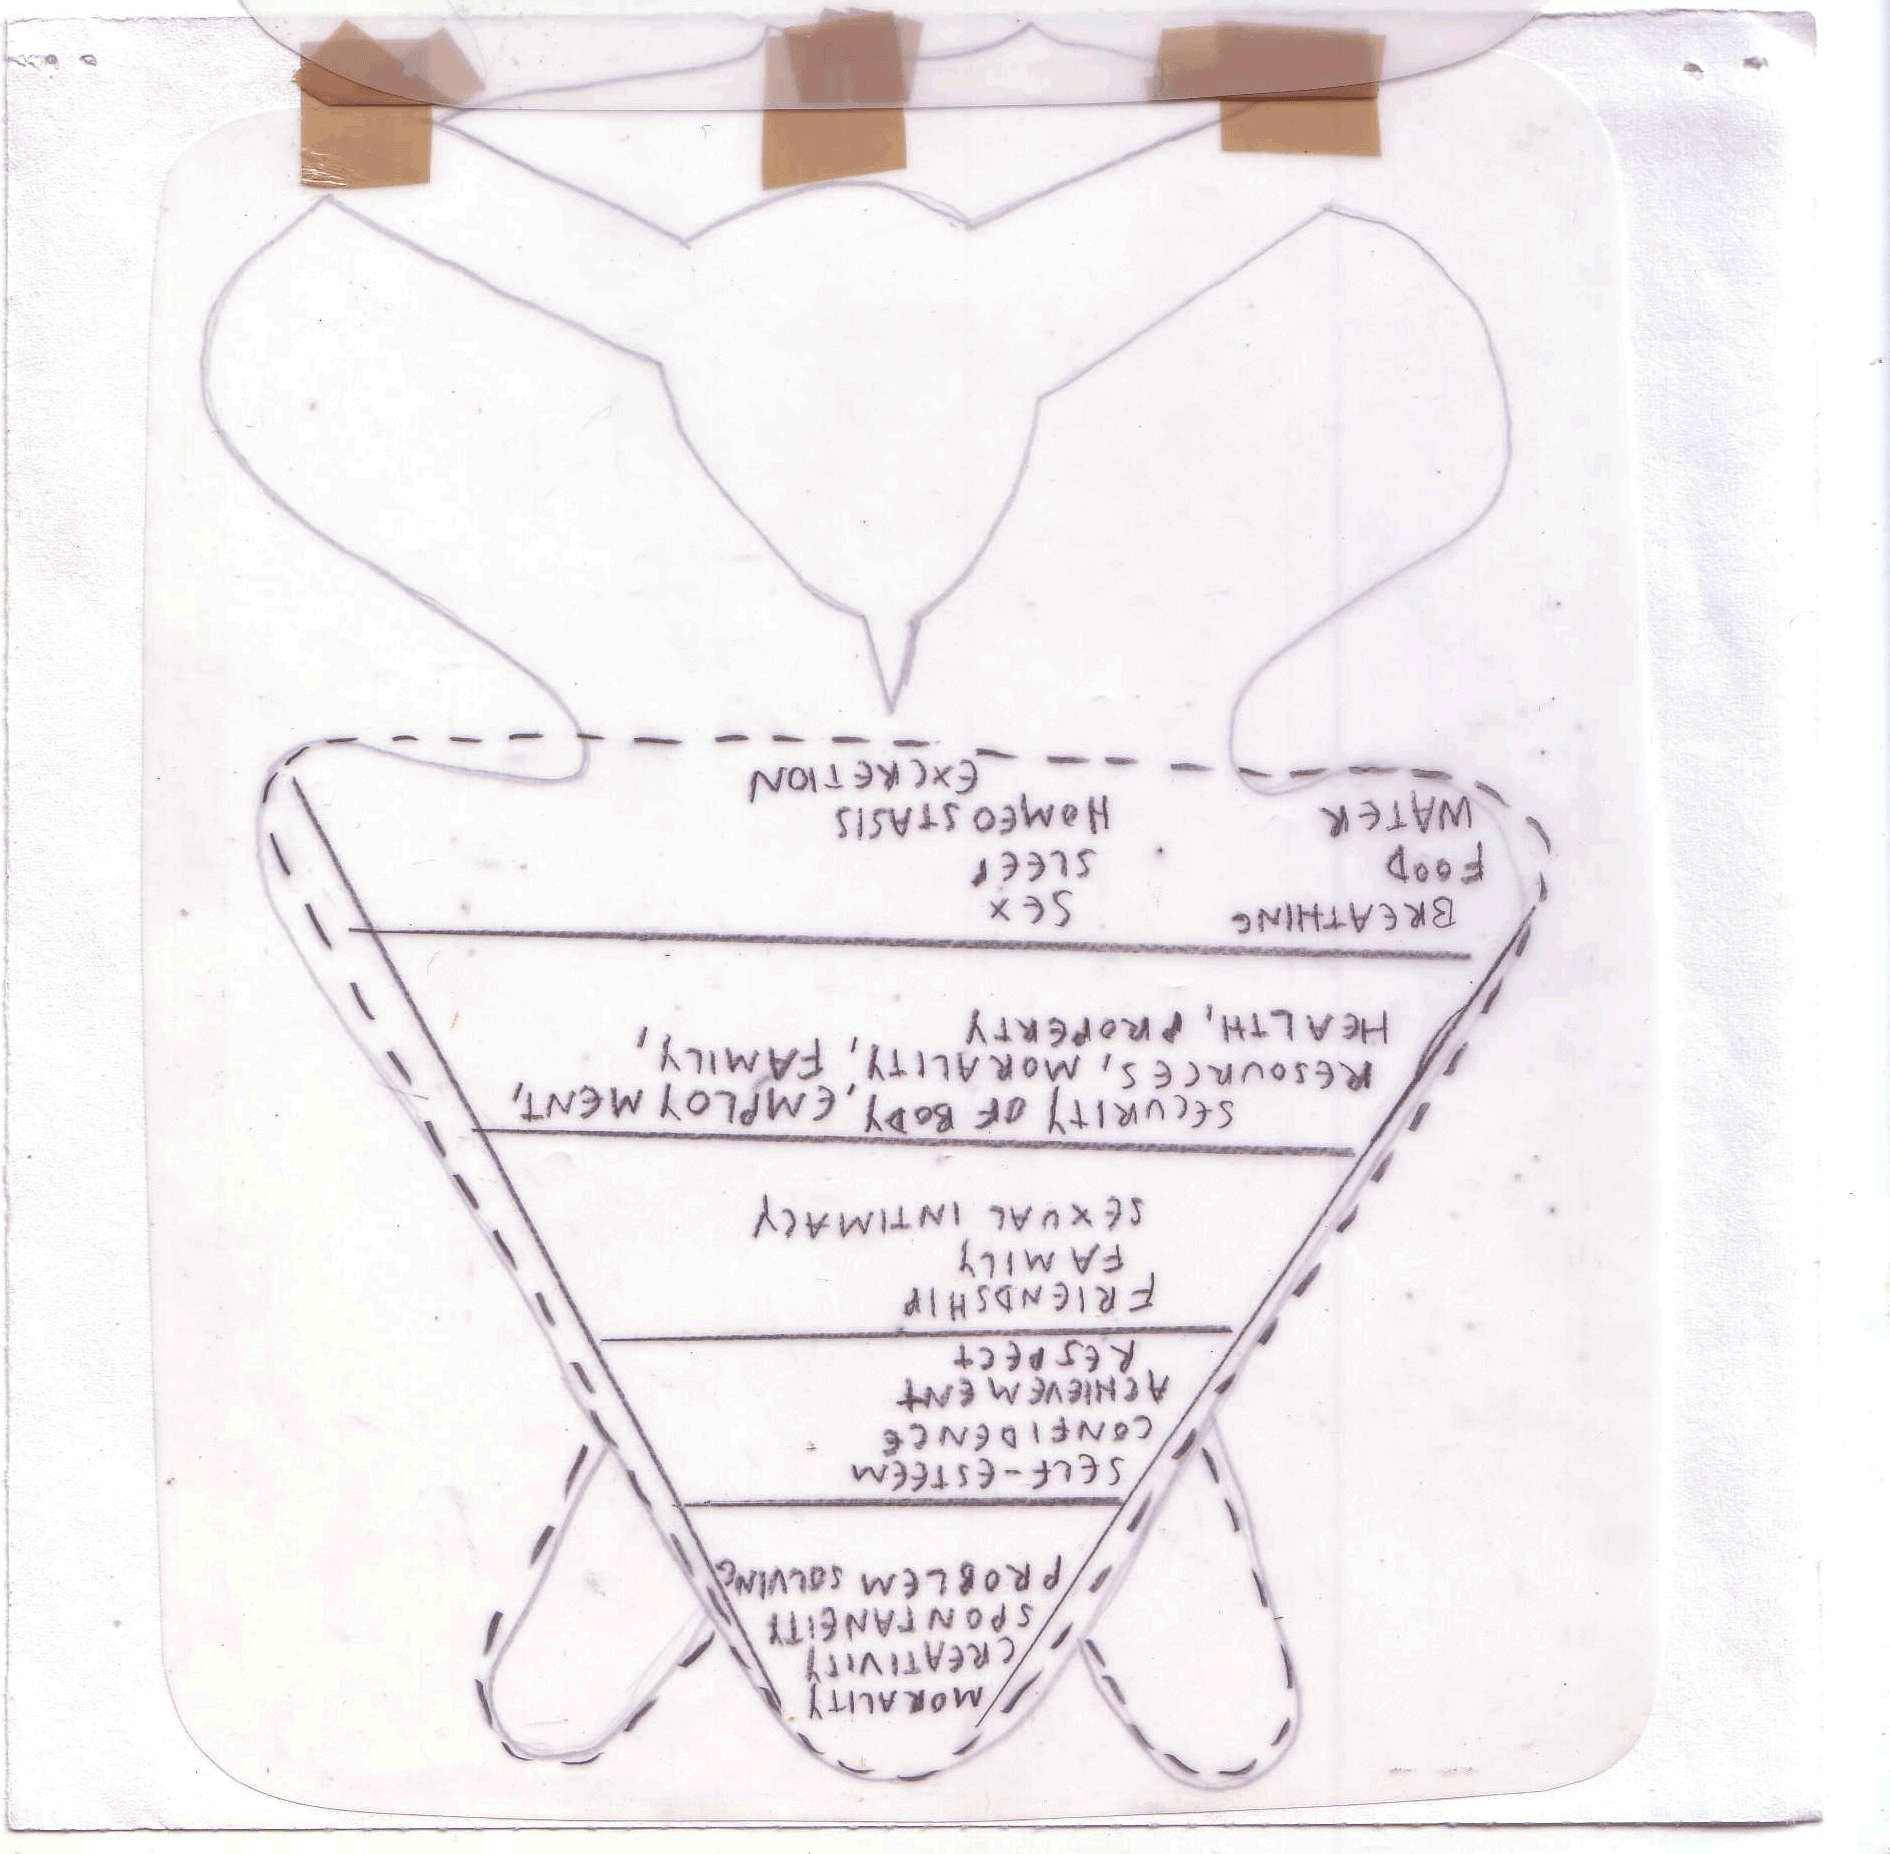 MORALITY
CREATIVITY
SPONTANEITY
PROBLEM SOLVING
SELF-ESTEEM
CONFIDENCE
ACHIEVEMENT
RESPECT
FRIENDSHIP
FAMILY
SEXUAL INTIMACY
SECURITY OF BODY, EMPLOYMENT,
RESOURCES, MORALITY, FAMILY,
HEALTH, PROPERTY
BREATHING SEX
FOOD SLEEP
WATER HOMEOSTASIS
EXCRETION